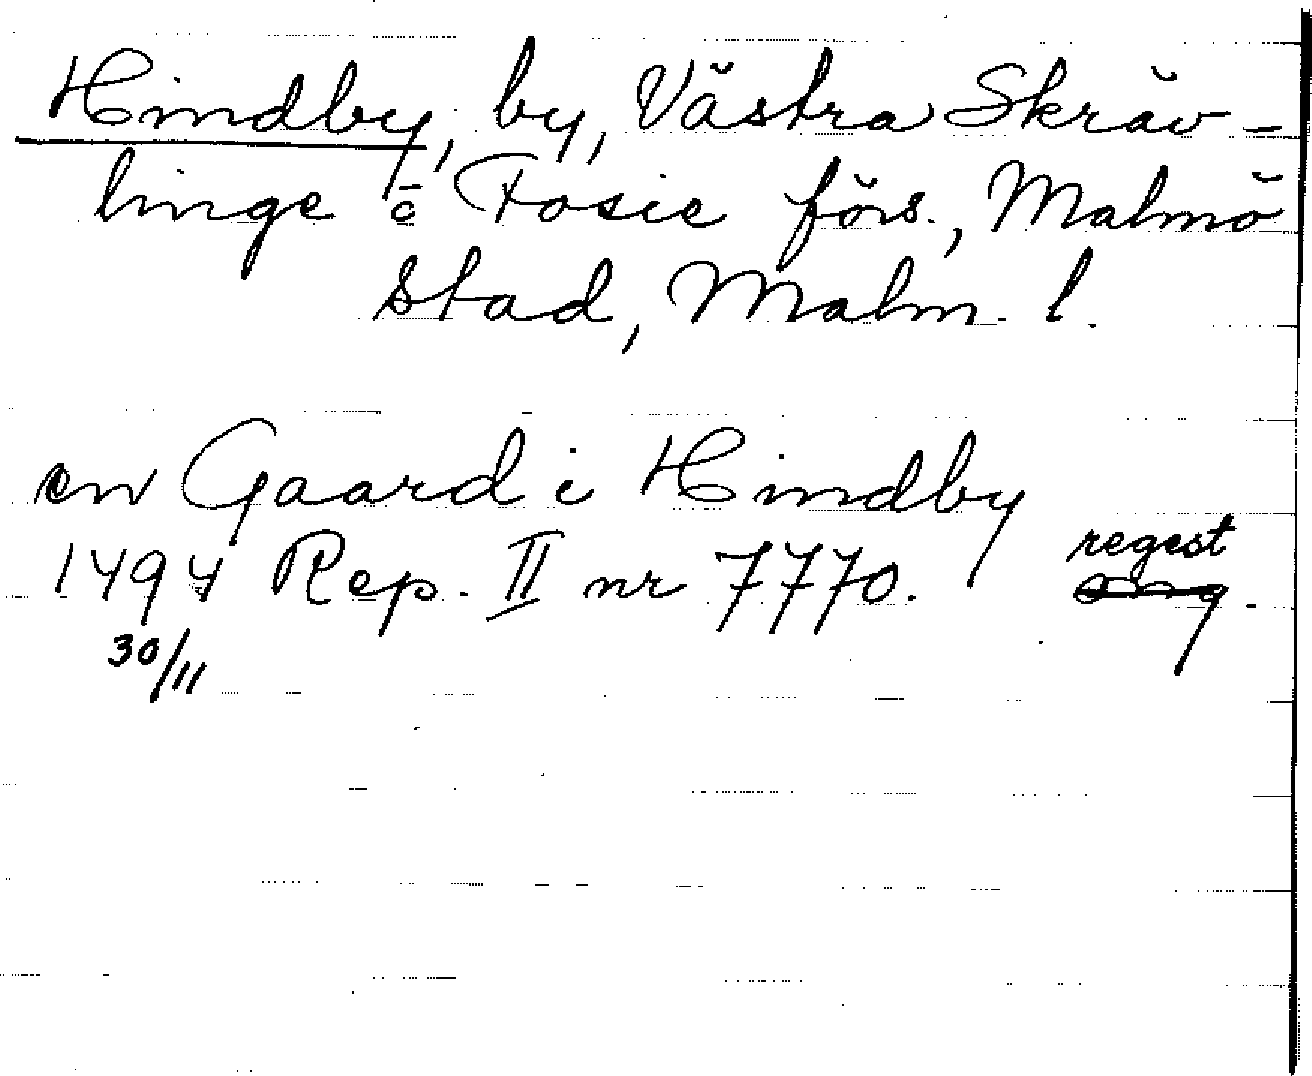 Hindby, by, Västra Skräv-
linge o Fosie förs., Malmö
stad, Malm. l.
en Gaard i Hindby
1494 Rep. II nr 7770. regest
30/11